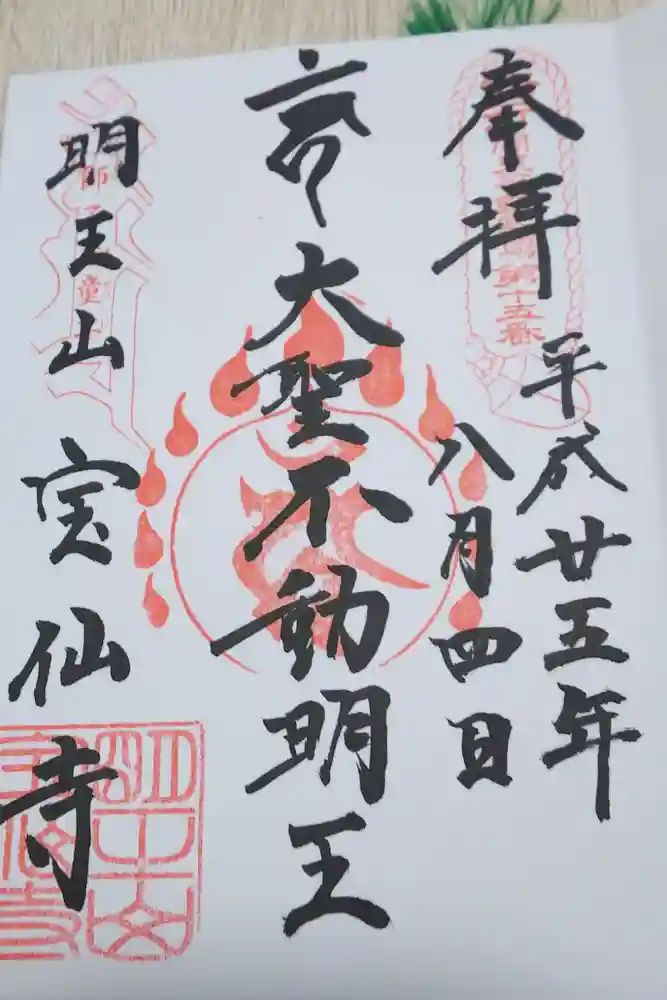 奉拝
平成廿五年
八月四日
大聖不動明王
明王山 宝仙寺
第十五番